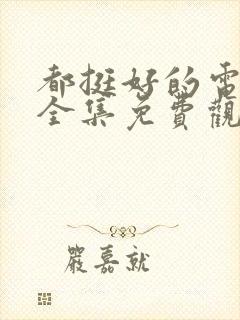 都挺好的電
全集免費觀
嚴嘉就